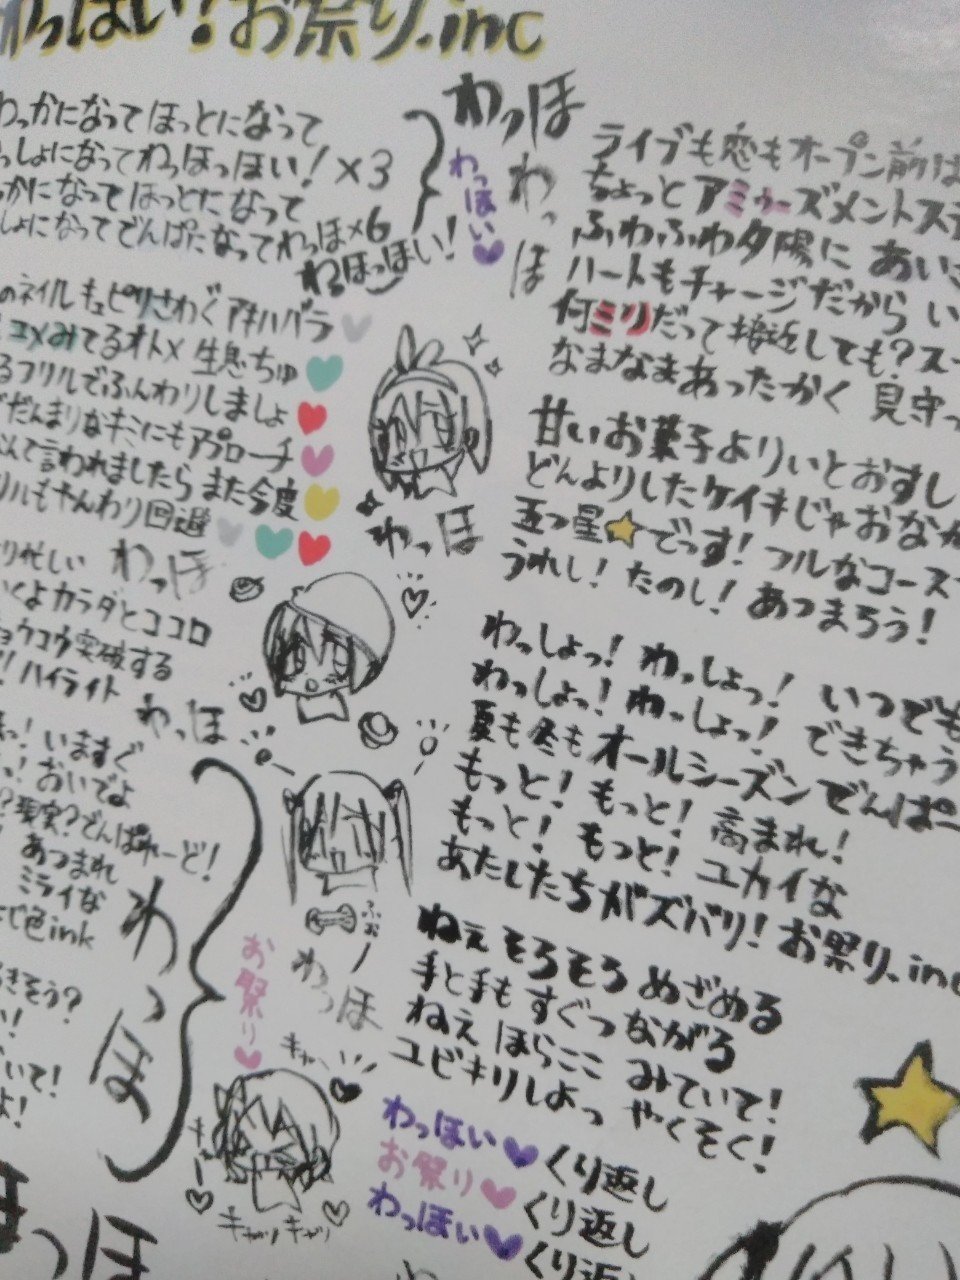 わっほい!お祭り.inc
わっかになってほっとになって
っしょになってわっほっほい!×3
っかになってほっとになって
しょになってでんぱになってわっほ×6
わほっほい!
わっほ
わっほい
わっほ
のネイルキュピりさわぐアキハバラ
ユメみてるオトメ 生息ちゅ
るフリルでふんわりしましょ
だんまりなキミにもアプローチ
んて言われましたら また今度
リルもやんわり回避
わっほ
り忙しい わっほ
くよカラダとココロ
ョウコウ突破する
!ハイライト
わっほ
っ!いますぐ
っ!おいでよ
?現実?でんぱれーど!
あつまれ
ミライな
色ink
きそう?
い!
いて!
よ!
わっほ
お祭り
ふぉー
わっほ
キャー
キャー
キャリキャリ
っほ
ライブも恋もオープン前は
ちょっとアミューズメントステ
ふわふわ夕陽に あいこ
ハートもチャージだから い
何ミリだって接近しても?ス
なまなまあったかく 見守っ
甘いお菓子よりぃとおすし
どんよりしたケイキじゃおなか
五つ星でっす!フルなコース
うれし!たのし!あつまろう!
わっしょっ!わっしょっ!いつでも
わっしょっ!わっしょっ!できちゃう
夏も冬もオールシーズンでんぱー
もっと!もっと!高まれ!
もっと!もっと!ユカイな
あたしたちがズバリ!お祭り.inc
ねぇそろそろ めざめる
手と手もすぐつながる
ねぇほらここ みていて!
ユビキリしよっ やくそく!
わっほい くり返し
お祭り くり返し
わっほい くり返